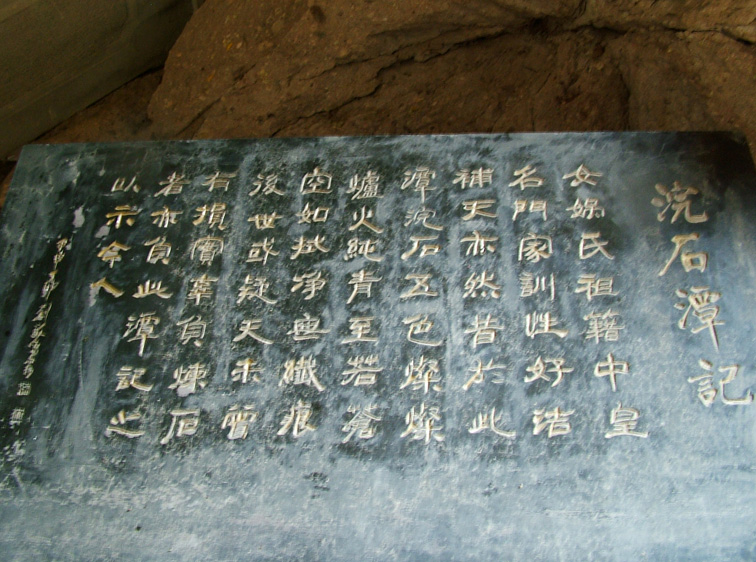 浣石潭記
女媧氏祖籍中皇
名門家訓性好洁
補天亦然昔於此
潭浣石五色燦燦
爐火純青至若蒼
空如拭净無纖痕
後世或疑天未曾
有損實辜負煉石
者亦負此潭記之
以示今人